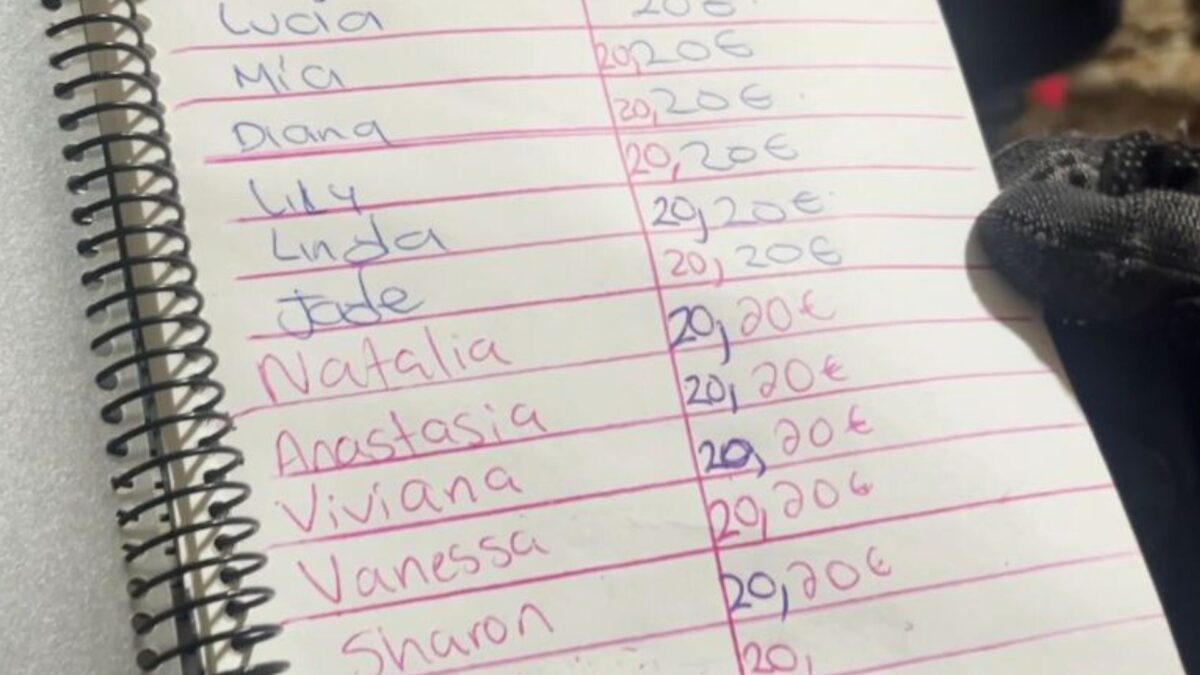 Lucia 20€
Mía 20,20€
Diana 20,20€
Lily 20,20€
Linda 20,20€
Jade 20,20€
Natalia 20,20€
Anastasia 20,20€
Viviana 20,20€
Vanessa 20,20€
Sharon 20,20€
20,